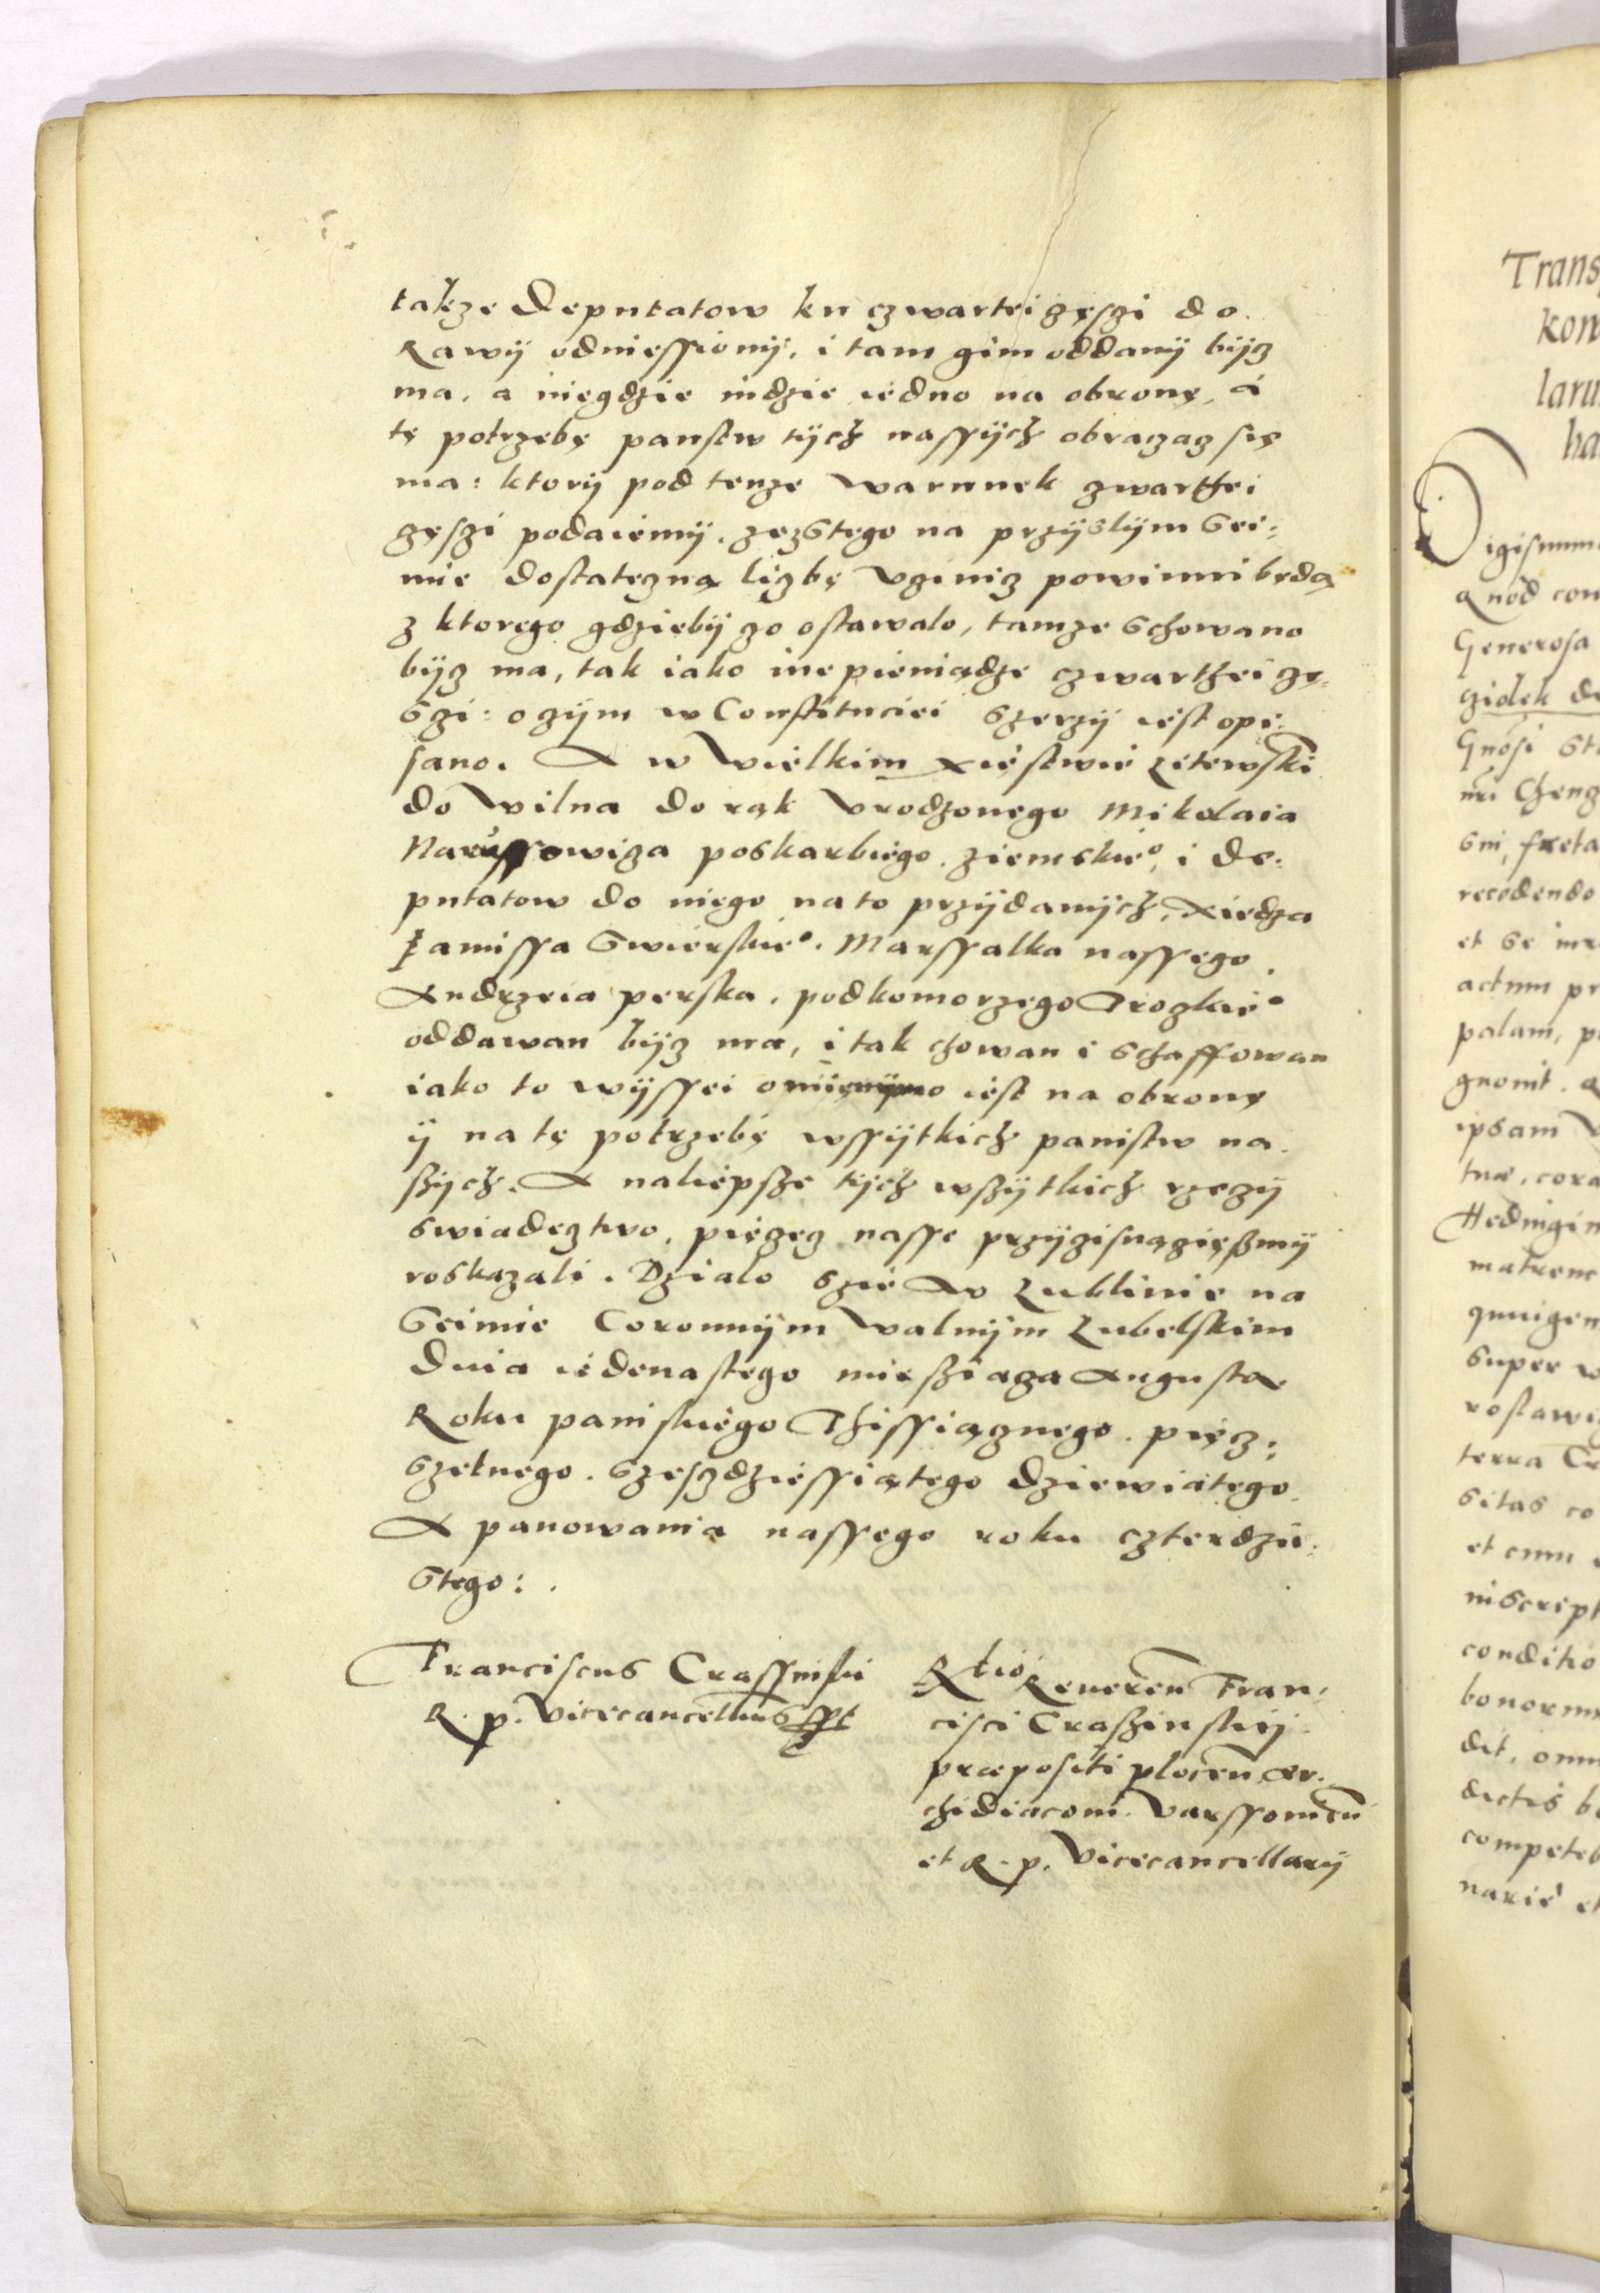 takze Deputatow ku czwartei częsci do
Rawÿ odniessionÿ, i tam gim oddanÿ bÿcz
ma, a niegdzie indzie iedno na obronę, á
tę potrzebę panstw tÿch nassÿch obraczacz się
ma: ktorÿ pod tenze warunek czwarthei
częsci podaiemÿ, zezstego na przÿslÿm sei=
mie dostateczną liczbę vczinicz powinni będą
z ktorego gdziebÿ czo ostawalo, tamze schowano
bÿcz ma, tak iako ine pieniądze czwarthei czę=
sci: o czÿm w Constituciei szerzÿ iest opi=
sano. A w Wielkim Xięstwie Litewski
do Wilna do rąk Vrodzonego Mikolaia
Narussowicza poskarbiego ziemskie°, i De=
putatow do niego na to przÿdanÿch, Xiedza
Jamissa Swierskie°. Marssalka nassego
Andrzeia perska, podkomorzego Troczkie°
oddawan bÿcz ma, i tak chowan i schaffowan
iako to wÿssei omienÿono iest na obronę
ÿ na tę potrzebę wssÿtkich panistw na=
szÿch. A naliepsze tÿch wszÿtkich rzeczÿ
swiadecztwo, pięczęcz nasse przÿcisnącięszmÿ
roskazali. Dzialo szie w Lublinie na
Seimie Coronnÿm Walnÿm Lubelskim
Dnia iedenastego miesziącza Augusta
Roku paniskiego Thissiącznego. pięcz=
szetnego. szesczdziessiątego dziewiątego.
A panowania nassego roku czterdzie=
stego:.
Franciscus Crassinski
R. p. Vicecancellarius sspt
Rtio Reueren Fran=
cisci Craszinskij
præpositi plocen Ar=
chidiaconi Varssouien
et R. p. Vicecancellarij
Trans
kow
laru
ha
Sigismun
Quod con
Generosa
cziolek de
Gnosi St
nri Chenc
sni, freta
recedendo
et se in
actum pr
palam, p
gnouit. Q
ipsam v
tuæ, cora
Hedingin
matrem
quingen
super v
rostawi
terra C
sitas co
et cum
inscript
conditio
bonorum
dit, omn
dictis b
competeb
narie et